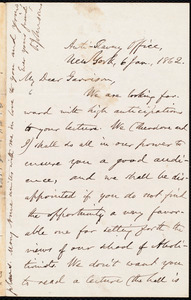 Anti-Slavery Office,
New York, 6 Jan., 1862.
My Dear Garrison,
We are looking for-
ward with high anticipations
to your lecture. We (Theodore and
I) shall do all in our power to
ensure you a good audi-
ence, and we shall be dis-
appointed if you do not find
the opportunity a very favor-
able one for setting forth the
views of our school of Aboli-
tionists. We don't want you
to read a lecture (the hall is